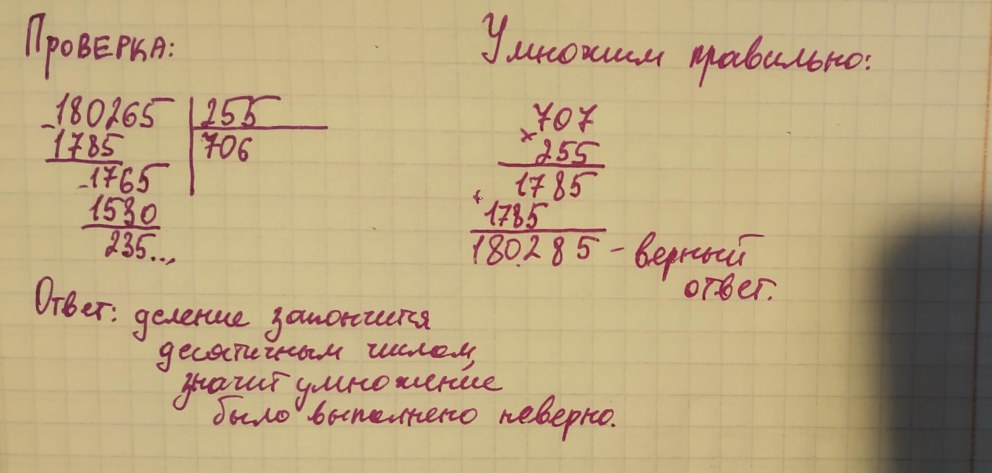 Проверка:
180265 | 255
- 1785 | 706
- 1765
1530
235...
Ответ: деление закончится
десятичным числом,
значит умножение
было выполнено неверно.
Умножим правильно:
707
× 255
1785
+ 1785
180285 – верный
ответ.